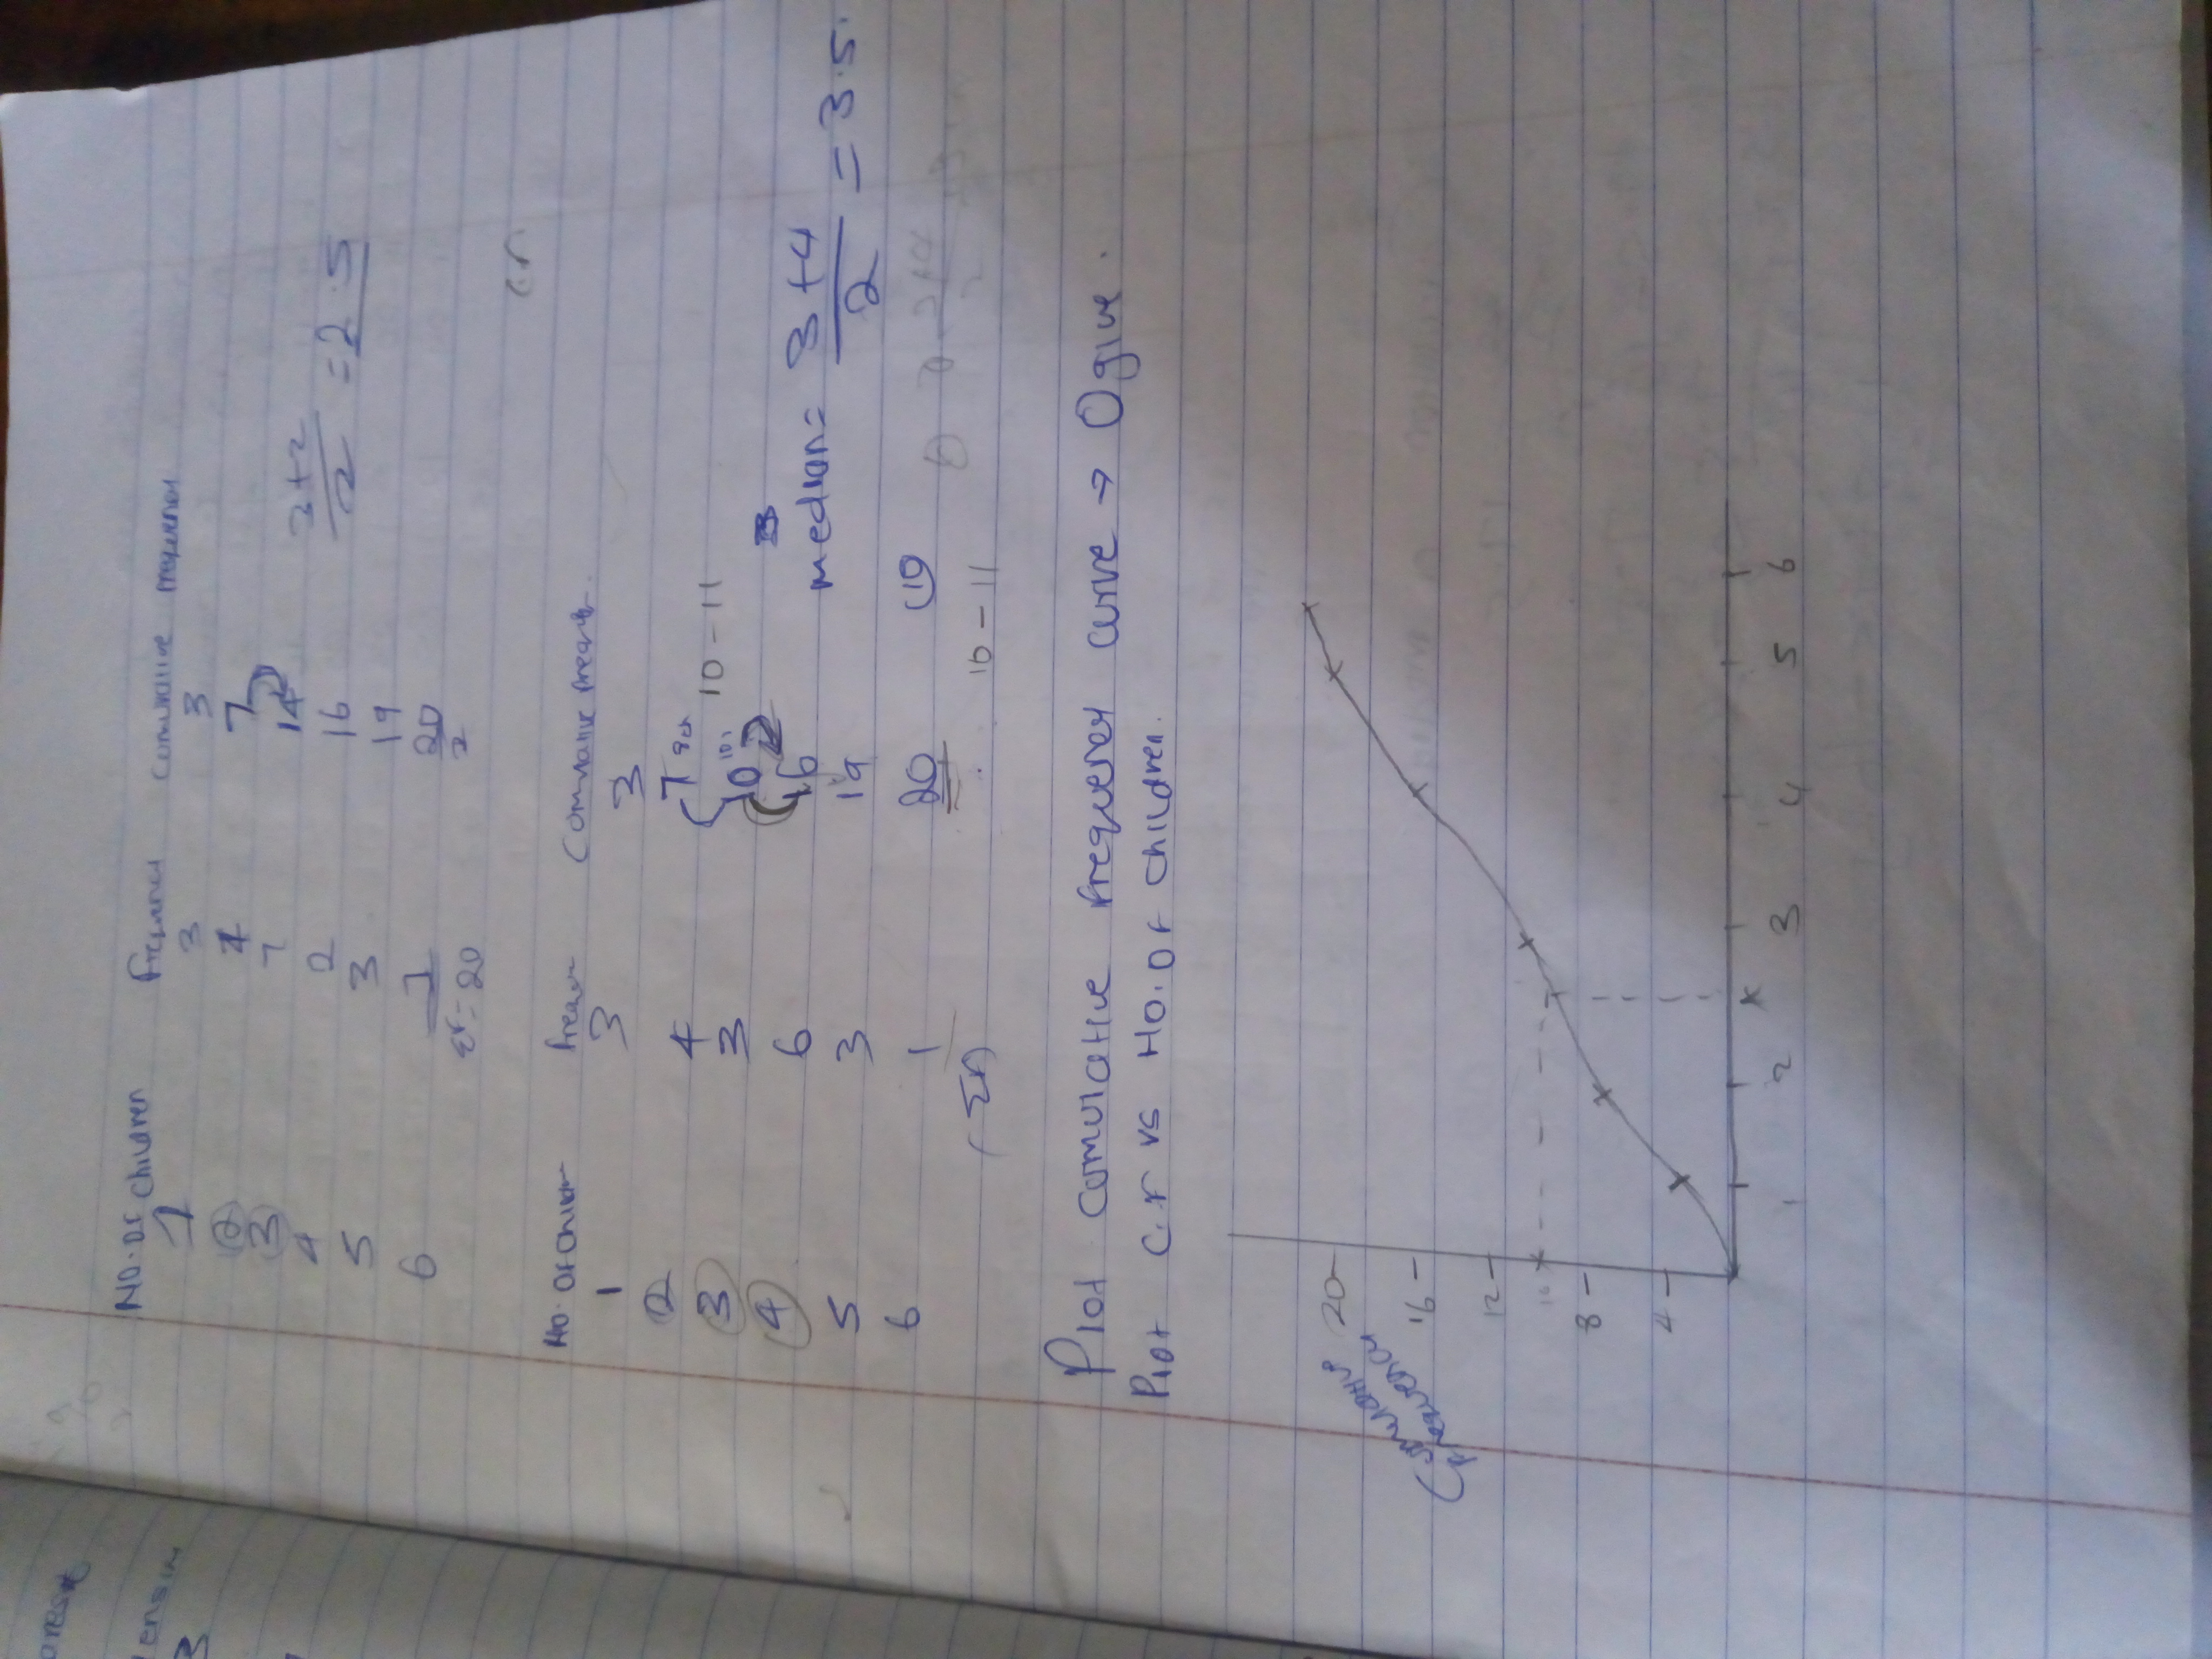 orest
ensin
3
NO. OF children frequency cumurative frequency
1 3 3
2 4 7
3 7 14
4 2 16
5 3 19
6 1 20
Σf= 20 2
3+2
2
= 2.5
c.f.
No. of Children frequen Comurative frequen.
1 3 3
2 4 7
3 3 10 10 - 11
4 6 16
5 3 19
6 1 20 10
Σf 10 - 11
median = 3+4
2
= 3.5.
Plot comurative frequency curve → Ogive.
Plot C.F vs No. of children.
Comurative
frequency
20
16
12
10
8
4
1 2 3 4 5 6